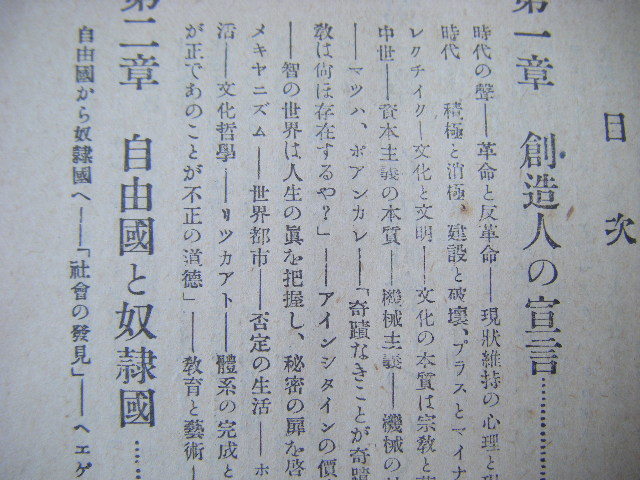 目次
第一章 創造人の宣言…………
時代の聲――革命と反革命――現狀維持の心理と
時代 積極と消極、建設と破壞、プラスとマイナ
レクチイク――文化と文明――文化の本質は宗敎と
中世――資本主義の本質――機械主義――機械の
――マツハ、ポアンカレ――「奇蹟なきことが奇蹟
敎は何ほ存在するや?」――アインシタインの價
――智の世界は人生の眞を把握し、秘密の扉を啓
メキヤニズム――世界都市――否定の生活――ホ
活――文化哲學――リツカアト――體系の完成と
が正であのことが不正の道德」――敎育と藝術―
第二章 自由國と奴隷國……
自由國から奴隷國へ――「社會の發見」――ヘエゲ